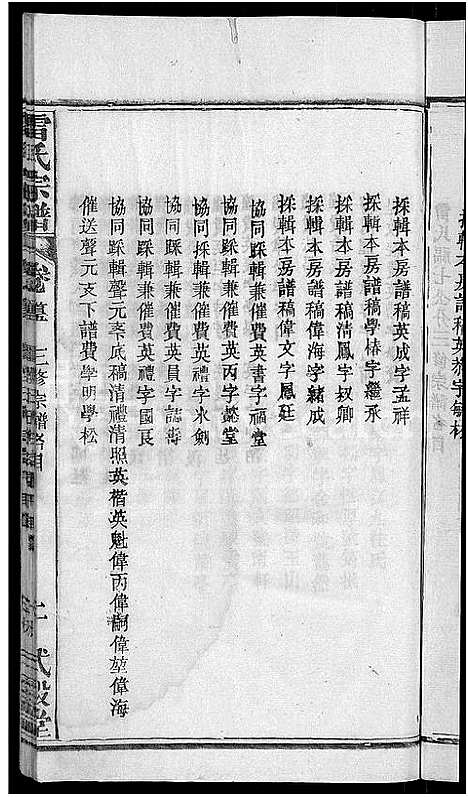 採輯本房譜稿英成字孟祥
採輯本房譜稿學椿字繼承
採輯本房譜稿清鳳字叔卿
採輯本房譜稿偉海字緒成
採輯本房譜稿偉文字鳳廷
協同踩輯兼催費英書字福堂
協同踩輯兼催費英丙字懿堂
協同採輯兼催費英授字水劍
協同踩輯兼催費英禮字國艮
協同踩輯兼催費英員字誌
協同踩輯聲元支底稿清禮清照英楷英魁偉丙偉嗣偉堃偉海
催送聲元支下譜費學明學松
雷氏宗譜
卷
三修宗譜
二
武毅堂